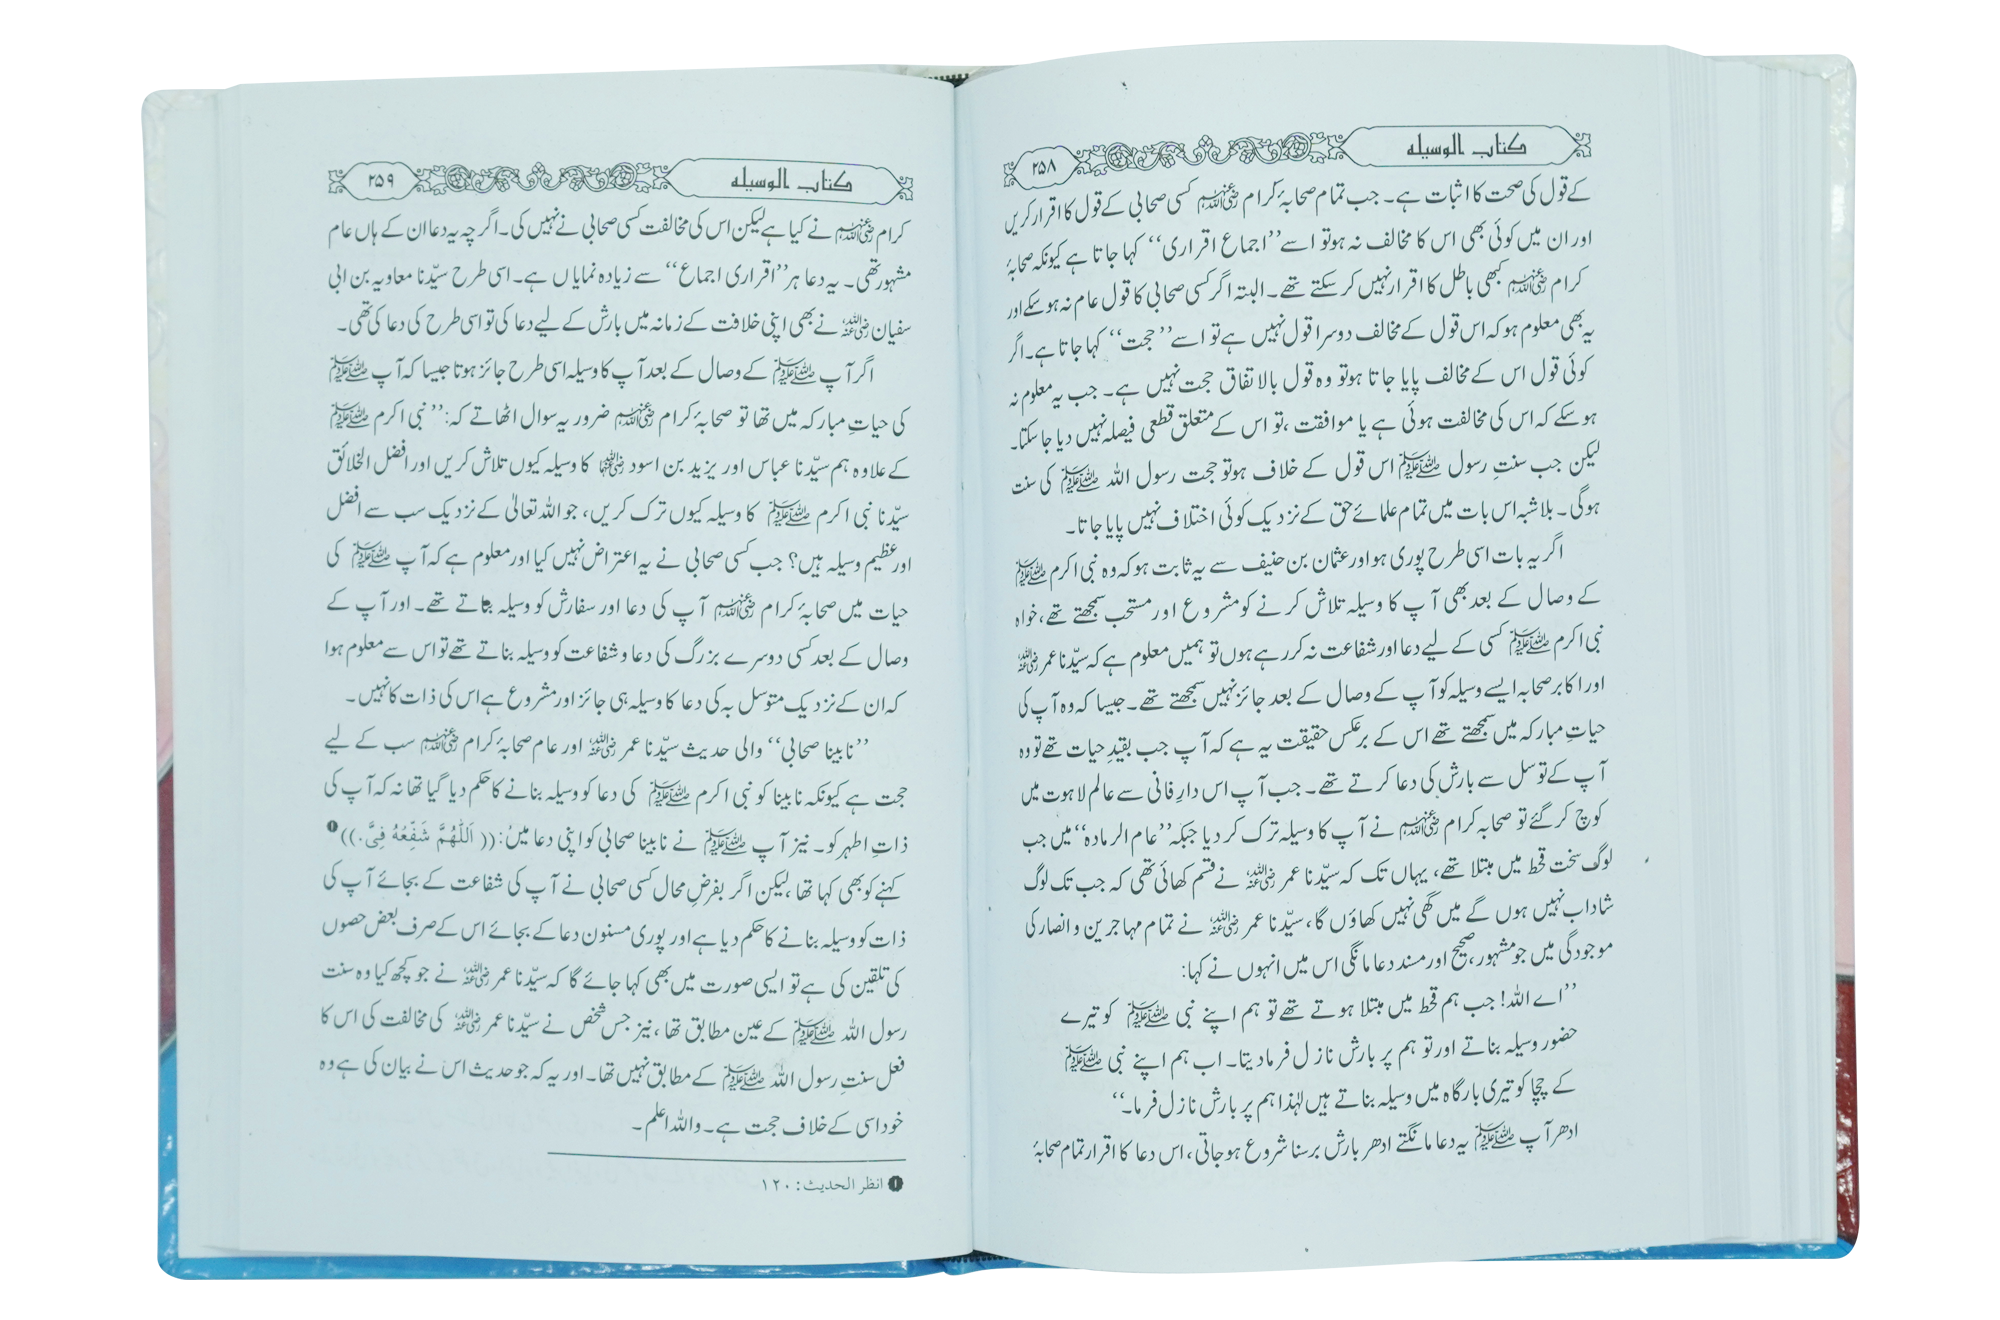 کتاب الوسیلہ
۲۵۸
کے قول کی صحت کا اثبات ہے۔ جب تمام صحابۂ کرام رضی اللہ عنہم کسی صحابی کے قول کا اقرار کریں
اور ان میں کوئی بھی اس کا مخالف نہ ہو تو اسے ’’اجماع اقراری‘‘ کہا جاتا ہے کیونکہ صحابۂ
کرام رضی اللہ عنہم کبھی باطل کا اقرار نہیں کر سکتے تھے۔ البتہ اگر کسی صحابی کا قول عام نہ ہو سکے اور
یہ بھی معلوم ہو کہ اس قول کے مخالف دوسرا قول نہیں ہے تو اسے ’’حجت‘‘ کہا جاتا ہے۔ اگر
کوئی قول اس کے مخالف پایا جاتا ہو تو وہ قول بالاتفاق حجت نہیں ہے۔ جب یہ معلوم نہ
ہو سکے کہ اس کی مخالفت ہوئی ہے یا موافقت، تو اس کے متعلق قطعی فیصلہ نہیں دیا جا سکتا۔
لیکن جب سنتِ رسول ﷺ اس قول کے خلاف ہو تو حجت رسول اللہ ﷺ کی سنت
ہوگی۔ بلاشبہ اس بات میں تمام علمائے حق کے نزدیک کوئی اختلاف نہیں پایا جاتا۔
اگر یہ بات اسی طرح پوری ہو اور عثمان بن حنیف سے یہ ثابت ہو کہ وہ نبی اکرم ﷺ
کے وصال کے بعد بھی آپ کا وسیلہ تلاش کرنے کو مشروع اور مستحب سمجھتے تھے، خواہ
نبی اکرم ﷺ کسی کے لیے دعا اور شفاعت نہ کر رہے ہوں تو ہمیں معلوم ہے کہ سیّدنا عمر رضی اللہ عنہ
اور اکابر صحابہ ایسے وسیلہ کو آپ کے وصال کے بعد جائز نہیں سمجھتے تھے۔ جیسا کہ وہ آپ کی
حیاتِ مبارکہ میں سمجھتے تھے اس کے برعکس حقیقت یہ ہے کہ آپ جب بقیدِ حیات تھے تو وہ
آپ کے توسل سے بارش کی دعا کرتے تھے۔ جب آپ اس دارِ فانی سے عالم لاہوت میں
کوچ کر گئے تو صحابہ کرام رضی اللہ عنہم نے آپ کا وسیلہ ترک کر دیا جبکہ ’’عام الرمادہ‘‘ میں جب
لوگ سخت قحط میں مبتلا تھے، یہاں تک کہ سیّدنا عمر رضی اللہ عنہ نے قسم کھائی تھی کہ جب تک لوگ
شاداب نہیں ہوں گے میں گھی نہیں کھاؤں گا، سیّدنا عمر رضی اللہ عنہ نے تمام مہاجرین و انصار کی
موجودگی میں جو مشہور، صحیح اور مسند دعا مانگی اس میں انہوں نے کہا:
’’اے اللہ! جب ہم قحط میں مبتلا ہوتے تھے تو ہم اپنے نبی ﷺ کو تیرے
حضور وسیلہ بناتے اور تو ہم پر بارش نازل فرما دیتا۔ اب ہم اپنے نبی ﷺ
کے چچا کو تیری بارگاہ میں وسیلہ بناتے ہیں لہٰذا ہم پر بارش نازل فرما۔‘‘
ادھر آپ ﷺ یہ دعا مانگتے ادھر بارش برسنا شروع ہو جاتی، اس دعا کا اقرار تمام صحابۂ
کتاب الوسیلہ
۲۵۹
کرام رضی اللہ عنہم نے کیا ہے لیکن اس کی مخالفت کسی صحابی نے نہیں کی۔ اگرچہ یہ دعا ان کے ہاں عام
مشہور تھی۔ یہ دعا ہر ’’اقراری اجماع‘‘ سے زیادہ نمایاں ہے۔ اسی طرح سیّدنا معاویہ بن ابی
سفیان رضی اللہ عنہ نے بھی اپنی خلافت کے زمانہ میں بارش کے لیے دعا کی تو اسی طرح کی دعا کی تھی۔
اگر آپ ﷺ کے وصال کے بعد آپ کا وسیلہ اسی طرح جائز ہوتا جیسا کہ آپ ﷺ
کی حیاتِ مبارکہ میں تھا تو صحابۂ کرام رضی اللہ عنہم ضرور یہ سوال اٹھاتے کہ: ’’نبی اکرم ﷺ
کے علاوہ ہم سیّدنا عباس اور یزید بن اسود رضی اللہ عنہما کا وسیلہ کیوں تلاش کریں اور افضل الخلائق
سیّدنا نبی اکرم ﷺ کا وسیلہ کیوں ترک کریں، جو اللہ تعالیٰ کے نزدیک سب سے افضل
اور عظیم وسیلہ ہیں؟ جب کسی صحابی نے یہ اعتراض نہیں کیا اور معلوم ہے کہ آپ ﷺ کی
حیات میں صحابۂ کرام رضی اللہ عنہم آپ کی دعا اور سفارش کو وسیلہ بناتے تھے۔ اور آپ کے
وصال کے بعد کسی دوسرے بزرگ کی دعا و شفاعت کو وسیلہ بناتے تھے تو اس سے معلوم ہوا
کہ ان کے نزدیک متوسل بہ کی دعا کا وسیلہ ہی جائز اور مشروع ہے اس کی ذات کا نہیں۔
’’نابینا صحابی‘‘ والی حدیث سیّدنا عمر رضی اللہ عنہ اور عام صحابۂ کرام رضی اللہ عنہم سب کے لیے
حجت ہے کیونکہ نابینا کو نبی اکرم ﷺ کی دعا کو وسیلہ بنانے کا حکم دیا گیا تھا نہ کہ آپ کی
ذاتِ اطہر کو۔ نیز آپ ﷺ نے نابینا صحابی کو اپنی دعا میں: ((اَللّٰهُمَّ شَفِّعْهُ فِیَّ.)) ❶
کہنے کو بھی کہا تھا، لیکن اگر بفرضِ محال کسی صحابی نے آپ کی شفاعت کے بجائے آپ کی
ذات کو وسیلہ بنانے کا حکم دیا ہے اور پوری مسنون دعا کے بجائے اس کے صرف بعض حصوں
کی تلقین کی ہے تو ایسی صورت میں بھی کہا جائے گا کہ سیّدنا عمر رضی اللہ عنہ نے جو کچھ کیا وہ سنت
رسول اللہ ﷺ کے عین مطابق تھا، نیز جس شخص نے سیّدنا عمر رضی اللہ عنہ کی مخالفت کی اس کا
فعل سنتِ رسول اللہ ﷺ کے مطابق نہیں تھا۔ اور یہ کہ جو حدیث اس نے بیان کی ہے وہ
خود اسی کے خلاف حجت ہے۔ واللہ اعلم۔
❶ انظر الحدیث: ۱۲۰